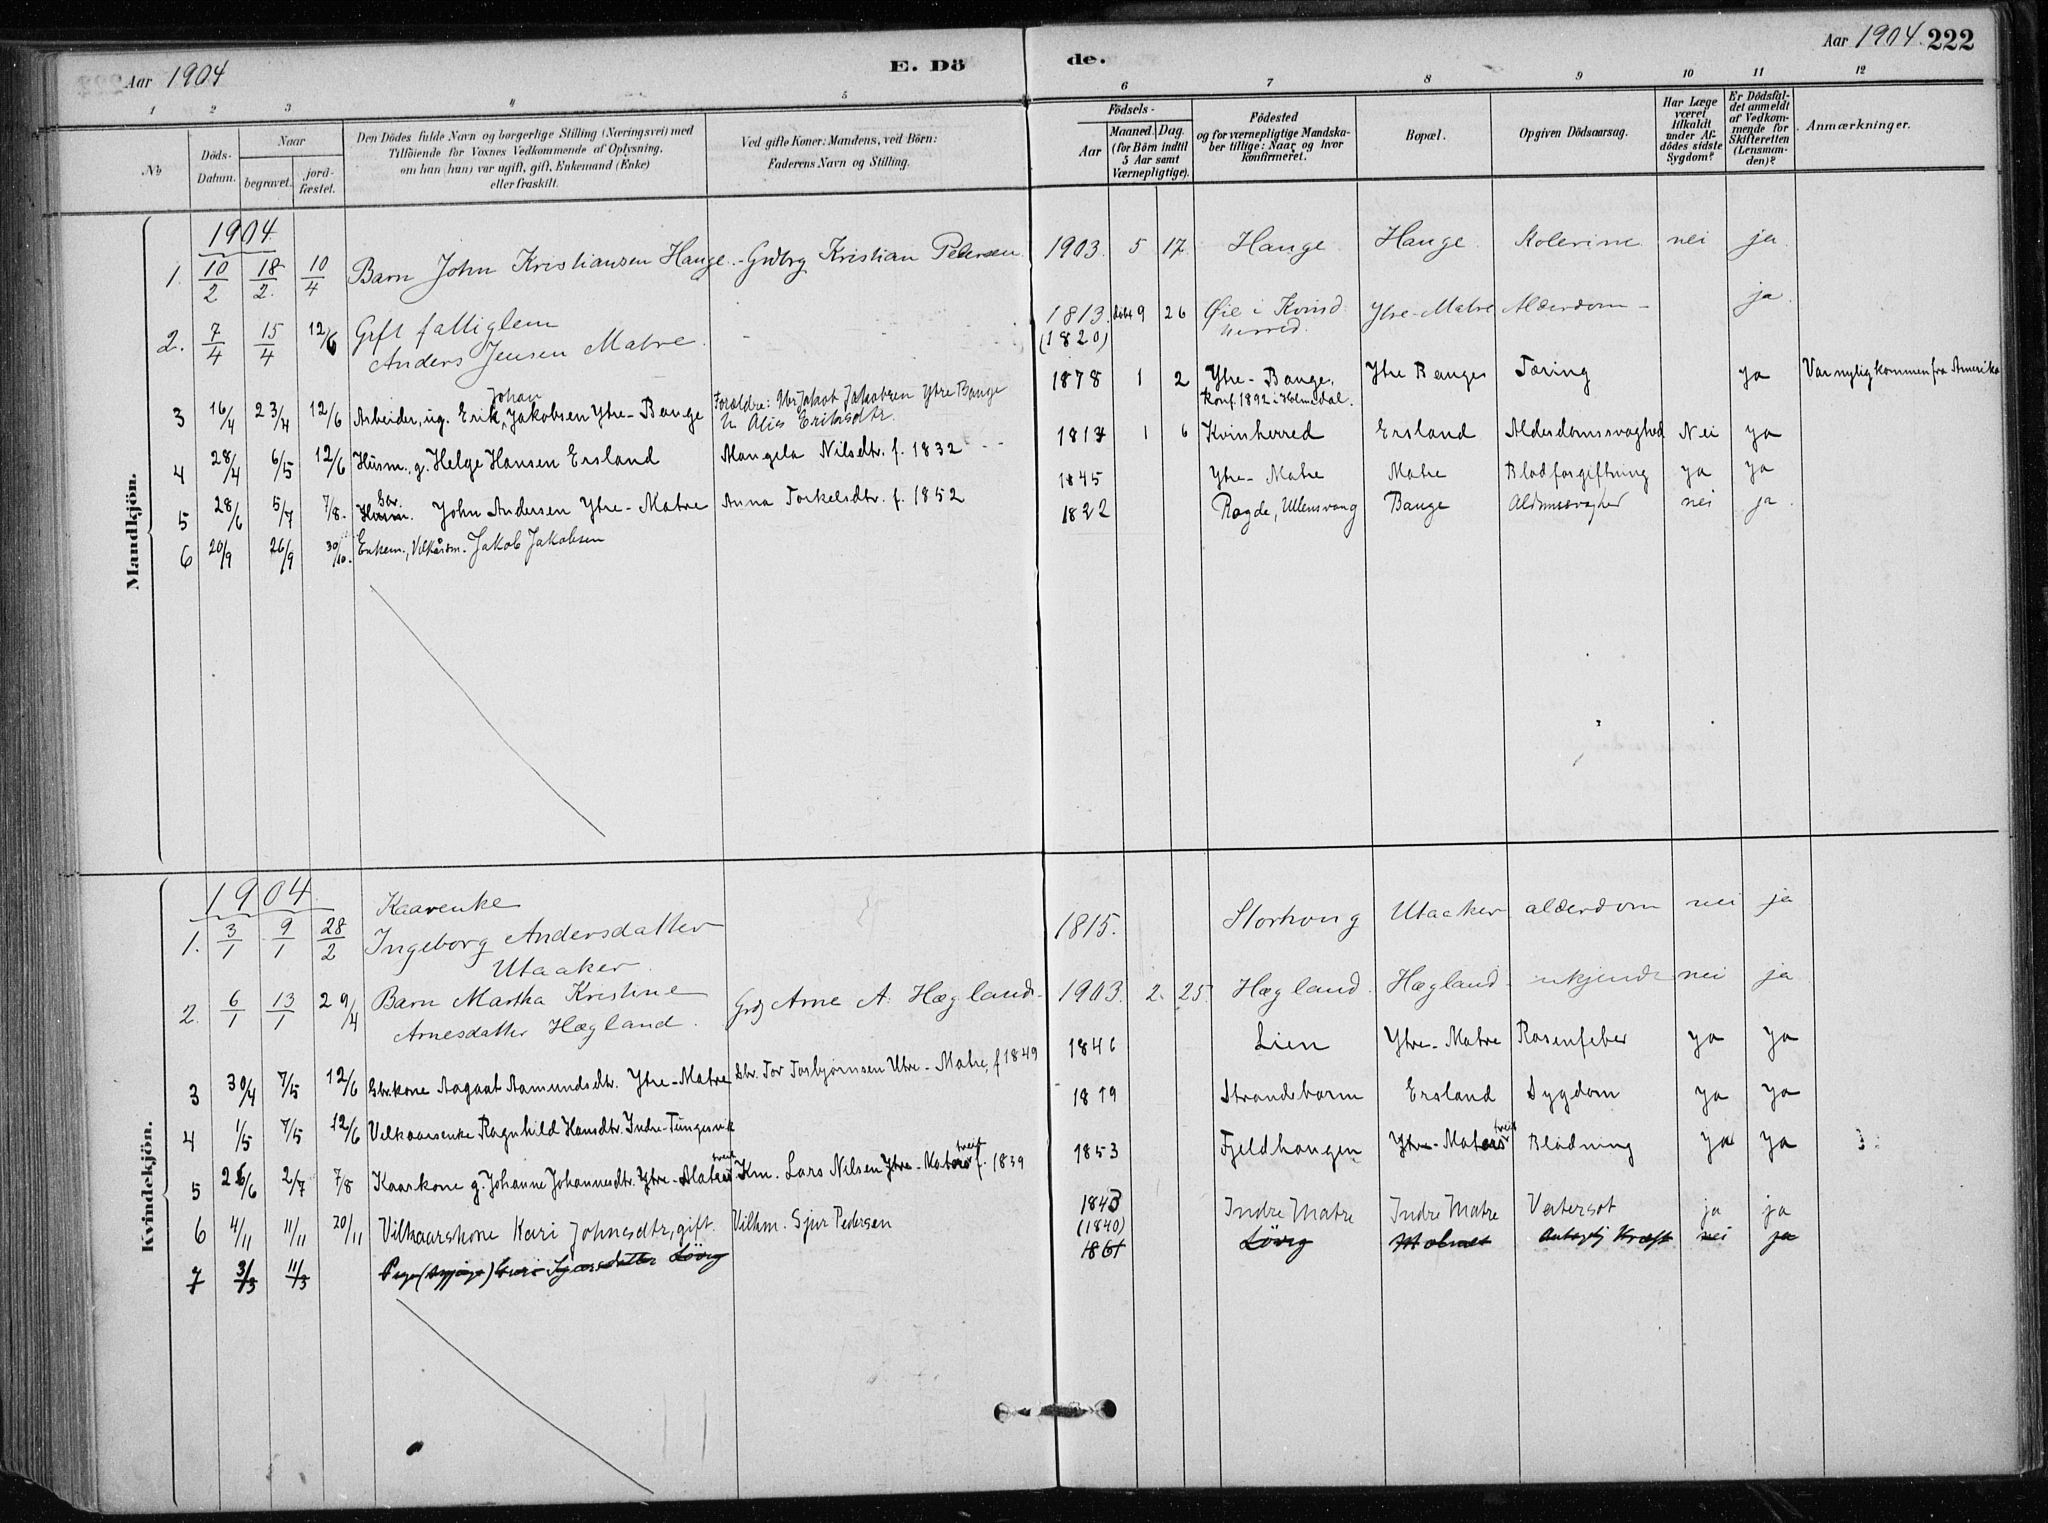 Aar 1904
E. Dö
de.
Aar 1904. 222
1 2 3 4 5 6 7 8 9 10 11 12
No
Döds-
Datum.
Naar
begravet.
jord-
fæstet.
Den Dödes fulde Navn og borgerlige Stilling (Næringsvei) med
Tilföiende for Voxnes Vedkommende af Oplysning,
om han (hun) var ugift, gift, Enkemand (Enke)
eller fraskilt.
Ved gifte Koner: Mandens, ved Börn:
Faderens Navn og Stilling.
Födsels-
Aar
Maaned. Dag.
(for Börn indtil
5 Aar samt
Værnepligtige).
Födested
og for værnepligtige Mandska-
ber tillige: Naar og hvor
konfirmeret.
Bopæl.
Opgiven Dödsaarsag.
Har Læge
været
tilkaldt
under Af-
dödes sidste
Sygdom?
Er Dödsfal-
det anmeldt
af Vedkom-
mende for
Skifteretten
(Lensman-
den)?
Anmærkninger.
Mandkjön.
1904
1. 10/2 18/2. 10/4 Barn John Kristiansen Hauge. - Grdbrg Kristian Pedersen 1903. 5 17. Hauge Hauge. Kolerine nei ja.
2. 7/4 15/4 12/6 Gift fattiglem
Anders Jensen Matre. - 1813. døbt 9 26 Øie i Kvind
herred. Ytre-Matre Alderdom - ja.
(1820)
3 16/4 23/4 12/6 Arbeider, ug. Erik Johan Jakobsen Ytre-Bauge Forældre: Gbr Jakob Jakobsen Ytre Bauge
h. Alis Eriksdtr. 1878 1 2 Ytre-Bauge,
Konf. 1892 i Holmedal. Ytre Bauge Tæring ja Var nylig kommen fra Amerika
4 28/4 6/5 12/6 Husm., g. Helge Hansen Ersland Mangela Nilsdtr. f. 1832 - - 1817 1 6 Kvinherred Ersland Alderdomssvaghed Nei ja
5 28/6 5/7 7/8. Husm. Gbr. John Andersen Ytre-Matre Anna Torkelsdtr. f. 1852 1845 Ytre-Matre Matre Blodforgiftning ja ja
6 20/9 26/9 30/10. Enkem., Vilkårsm. Jakob Jakobsen 1822 Ragde, Ullensvang Bauge nei ja.
Kvindekjön.
1904
1. 3/1 9/1 28/2 Kaarenke
Ingeborg Andersdatter
Utaaker. 1815. Storhoug Utaaker alderdom nei ja
2. 6/1 13/1 29/4 Barn Martha Kristine
Arnesdatter Hægland. Grdbr Arne A. Hægland. 1903. 2. 25. Hægland. Hægland. ukjendt nei ja
3 30/4 7/5 12/6 Gbrkone Aagaat Aamundsdtr. Ytre-Matre Gbr. Tor Torbjørnsen Ytre-Matre, f 1849 1846 Lien Ytre-Matre Rosenfeber ja ja
4 1/5 7/5 12/6 Velkaarsenke Ragnhild Hansdtr. Indre-Tungesvik 1819 Strandebarm Ersland Sygdom ja ja
5 26/6 2/7 7/8 Kaarkone g. Johanne Johannesdtr. Ytre-Matres tveit Km. Lars Nilsen Ytre-Matres tveit f. 1839 1853 Fjeldhaugen Ytre-Matres tveit Blødning ja ja
6 4/11 11/11 20/11 Vilkaarskone Kari Johnsdtr, gift. Vilkm. Sjur Pedersen 1843
(1840) Indre Matre Indre Matre Vatersot ja ja
7 3/3 11/3 Sjursdatter Løvig 1861 Løvig Kræft nei ja